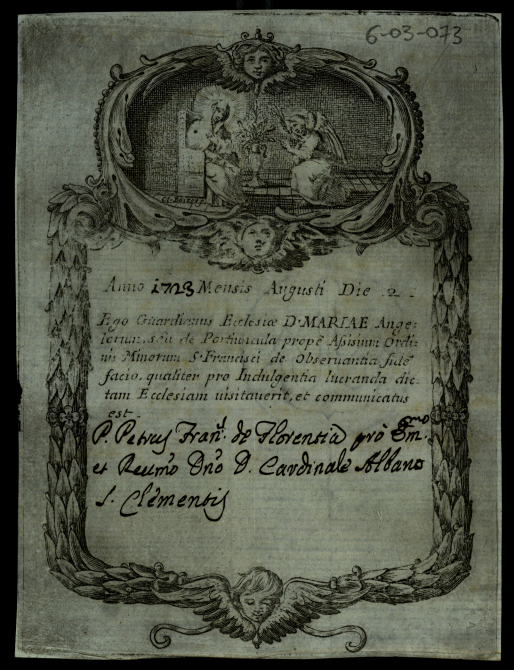 6-03-073
Anno 1723 Mensis Augusti Die 2.
Ego Guardianus Ecclesiæ D. MARIAE Ange-
lorum, seu de Portiuncula propè Assisium Ordi-
nis Minorum S. Francisci de Observantia fidē
facio, qualiter pro Indulgentia lucranda dic-
tam Ecclesiam uisitauerit, et communicatus
est.
P. Petrus Fran.s de Florentia prò Em.mo
et Reu.mo Dno D. Cardinale Albano
S. Clementis